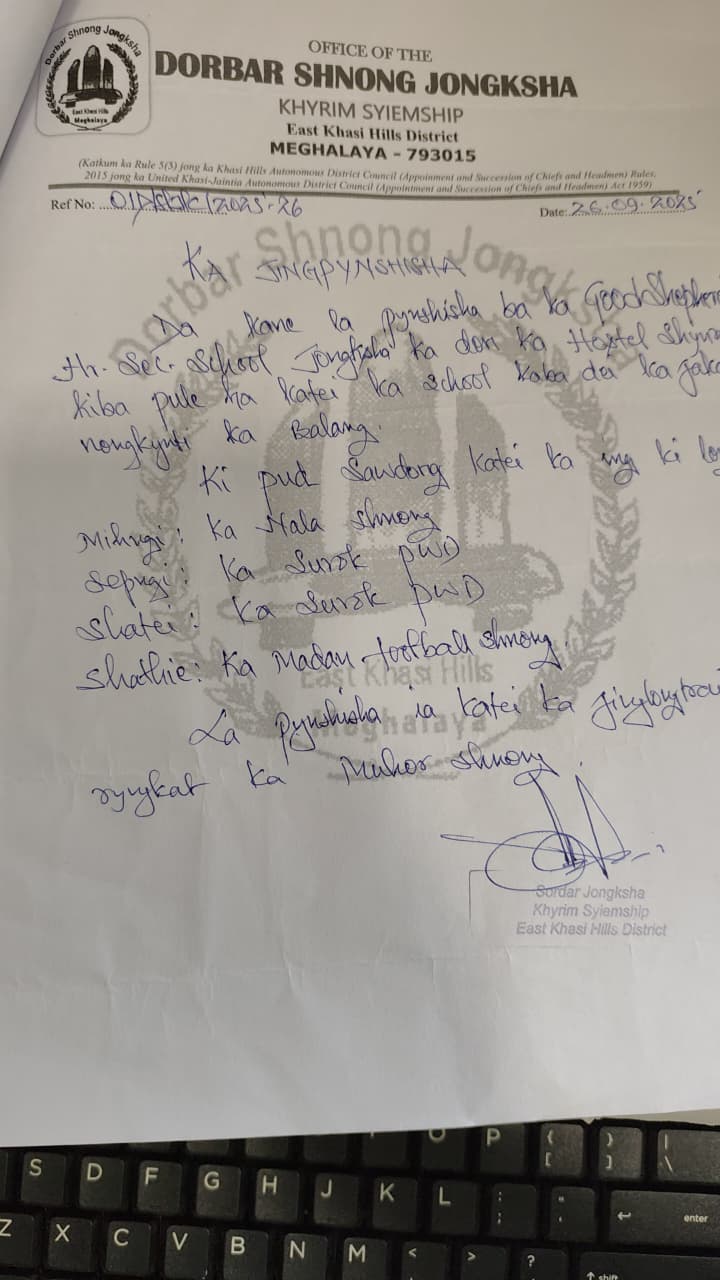 Dorbar Shnong Jongksha
East Khasi Hills
Meghalaya
OFFICE OF THE
DORBAR SHNONG JONGKSHA
KHYRIM SYIEMSHIP
East Khasi Hills District
MEGHALAYA - 793015
(Katkum ka Rule 5(3) jong ka Khasi Hills Autonomous District Council (Appoinment and Succession of Chiefs and Headmen) Rules,
2015 jong ka United Khasi-Jaintia Autonomous District Council (Appointment and Succession of Chiefs and Headmen) Act 1959)
Ref No: 2025-26 Date: 26.09.2025
KA JINGPYNSHISHA
Da kane la pynshisha ba ka Good
Hr. Sec. School Jongksha ka don ka Hostel
kiba pule ha katei ka school kaba dei ka
nongkynti ka Balang.
Ki pud sawdong katei ka ing ki
Mihngi: Ka Nala shnong
Sepngi: Ka Surok PWD
Shatei: Ka Surok PWD
Shathie: Ka Madan football shnong.
La pynshisha ia katei ka
ryngkat ka Muhor shnong.
Sordar Jongksha
Khyrim Syiemship
East Khasi Hills District
Dorbar Shnong Jongksha
East Khasi Hills
Meghalaya
O P { [ } ] | \
S D F G H J K L : ; " ' enter
Z X C V B N M < > ? shift